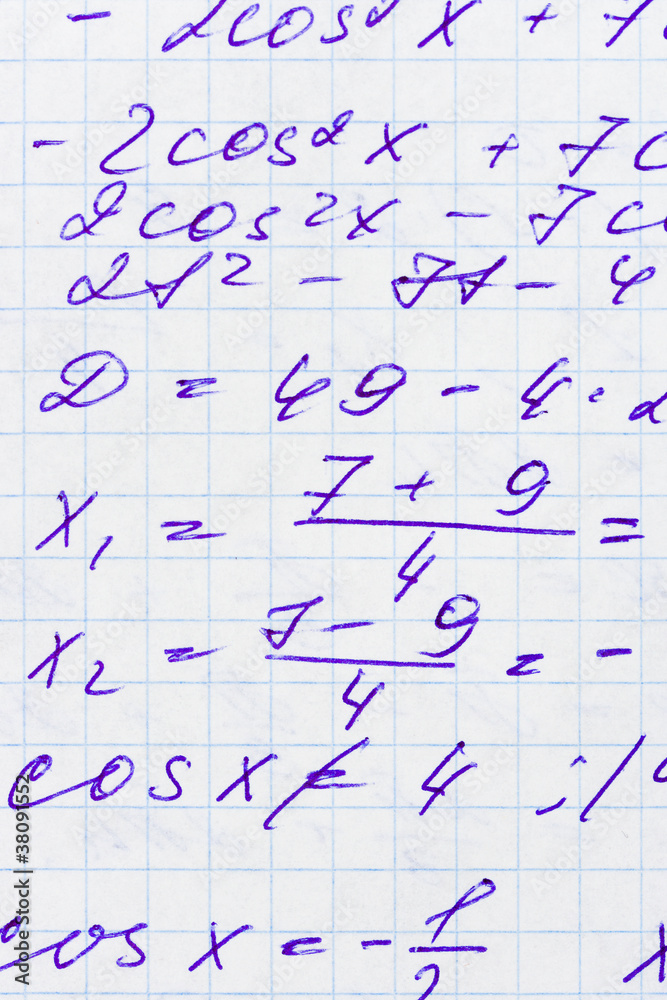 - 2cos² x + 7
- 2cos² x + 7c
2cos²x - 7c
2t² - 7t - 4
D = 49 - 4 · 2
x₁ = (7 + 9)/4 =
x₂ = (7 - 9)/4 = -
cos x ≠ 4
cos x = - 1/2 x
Adobe Stock | #38091552